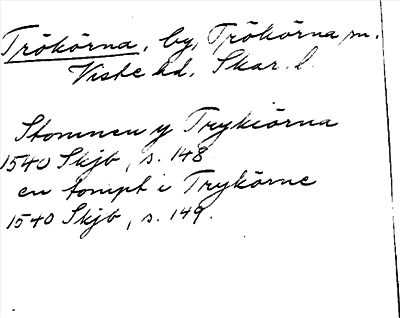 Trökörna, by, Trökörna sn.
Viste hd, Skar. l.
Stommen y Trykiörna
1540 Skjb, s. 148
en tompt i Trykörne
1540 Skjb, s. 149.